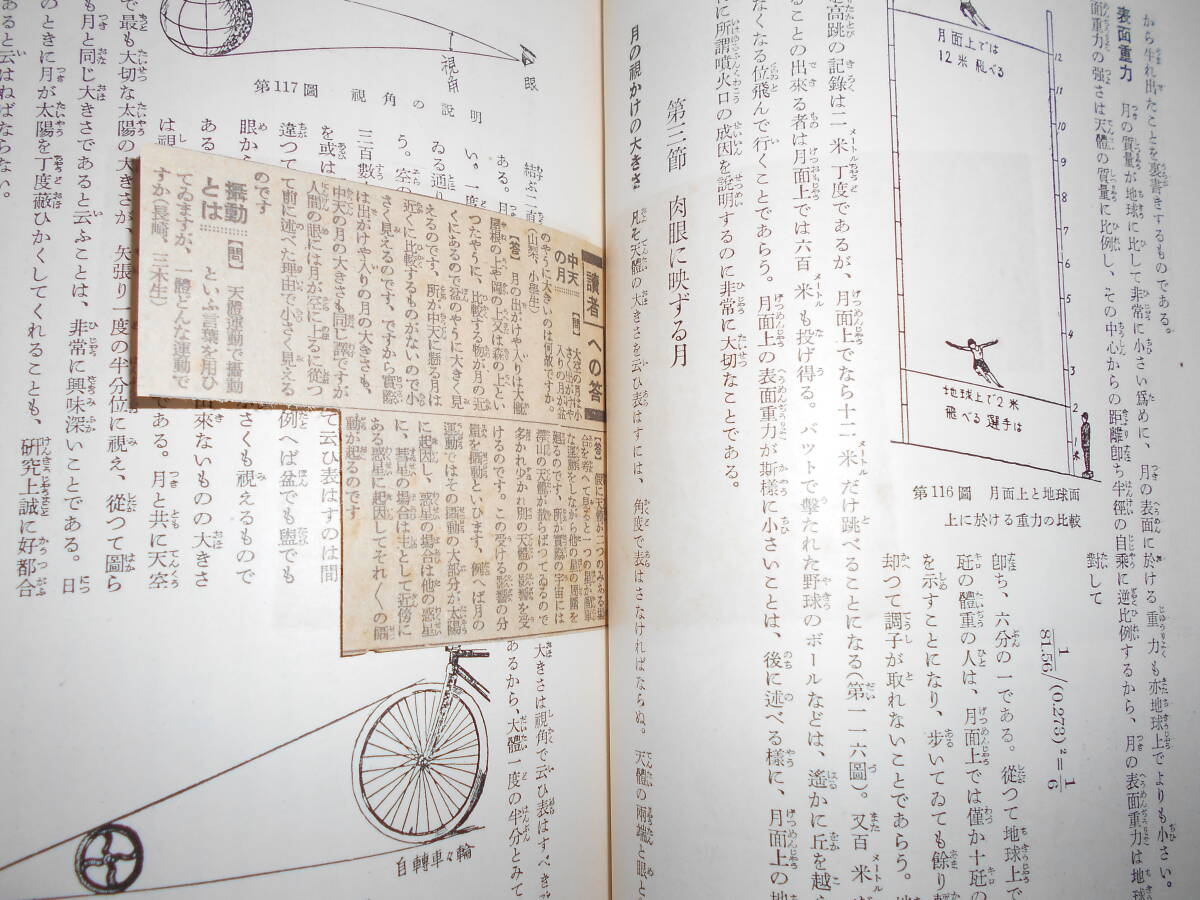 から生れ出たことを裏書きするものである。
表面重力
月の質量が地球に比して非常に小さい爲めに、月の表面に於ける重力も亦地球上でよりも小さい。
面重力の强さは天體の質量に比例し、その中心からの距離卽ち半徑の自乘に逆比例するから、月の表面重力は地球
對して
1/81.56/(0.273)²=1/6
卽ち、六分の一である。從つて地球上で
瓩の體重の人は、月面上では僅か十瓩の
を示すことになり、步いてゐても餘り
却つて調子が取れないことであらう。
月面上では
12米 飛べる
12
11
10
9
8
7
6
5
4
3
2
1米
地球上で2米
飛べる選手は
第116圖 月面上と地球面
上に於ける重力の比較
高跳の記錄は二米丁度であるが、月面上でなら十二米だけ跳べることになる(第一一六圖)。又百米
ることの出來る者は月面上では六百米も投げ得る。バットで擊たれた野球のボールなどは、遙かに丘を越
なくなる位飛んで行くことであらう。月面上の表面重力が斯樣に小さいことは、後に述べる樣に、月面上の
に所謂噴火口の成因を說明するのに非常に大切なことである。
第三節 肉眼に映ずる月
月の視かけの大きさ
凡そ天體の大きさを云ひ表はすには、角度で表はさなければならぬ。天體の兩端と眼と
眼
視角
第117圖 視角の說明
結ぶ二直
ある。月
い。一度
ゐる通り
う。空の
三百數
を或は
違つて
眼から
ある
は視
て云ひ表はすのは間
例へば盆でも盥でも
さくも視えるもので
出來ないものの大きさ
である。月と共に天空
で最も大切な太陽の大きさが、矢張り一度の半分位に視え、從つて圖らずも
も月と同じ大きさであると云ふことは、非常に興味深いことである。日
のときに月が太陽を丁度蔽ひかくしてくれることも、硏究上誠に好都合
あると云はねばならない。
大きさは視角で云ひ表はすべき
あるから、大體一度の半分とみて
自轉車々輪
讀者への答
中天の月
【問】 大空の月は小さく出がけや入りが盆
のやうに大きいのは何故ですか。
(山梨、小學生)
【答】 月の出がけや入りは大低
屋根の上や岡の上又は森の上とい
つたやうに、比較する物が月の近
くにあるので盆のやうに大きく見
えるのです、所が中天に懸る月は
近くに比較するものがないので小
さく見えるのです、ですから實際
は出がけや入りの月の大きさも、
中天の月の大きさも同じ譯ですが
人間の眼には月が空に上るにつれ
て前に述べた理由で小さく見える
のです
攝動とは
【問】 天體運動で攝動
といふ言葉を用ひ
てゐますが、一體どんな運動で
すか(長崎、三木生)
【答】 假に天體が二つのみある場
合を考へて見ると一つの星が簡單
な運動をしながら他の星の周圍を
廻るのです、所が實際の宇宙には
澤山の天體が散らばつてゐるので
多かれ少かれ別の天體の影響を受
けるのです。この受ける影響の分
量を攝動といひます、例へば月の
運動ではその攝動の大部分が太陽
に起因し、惑星の場合は他の惑星
に、彗星の場合は主として近傍に
ある惑星に起因してそれ〴〵の攝
動が起るのです